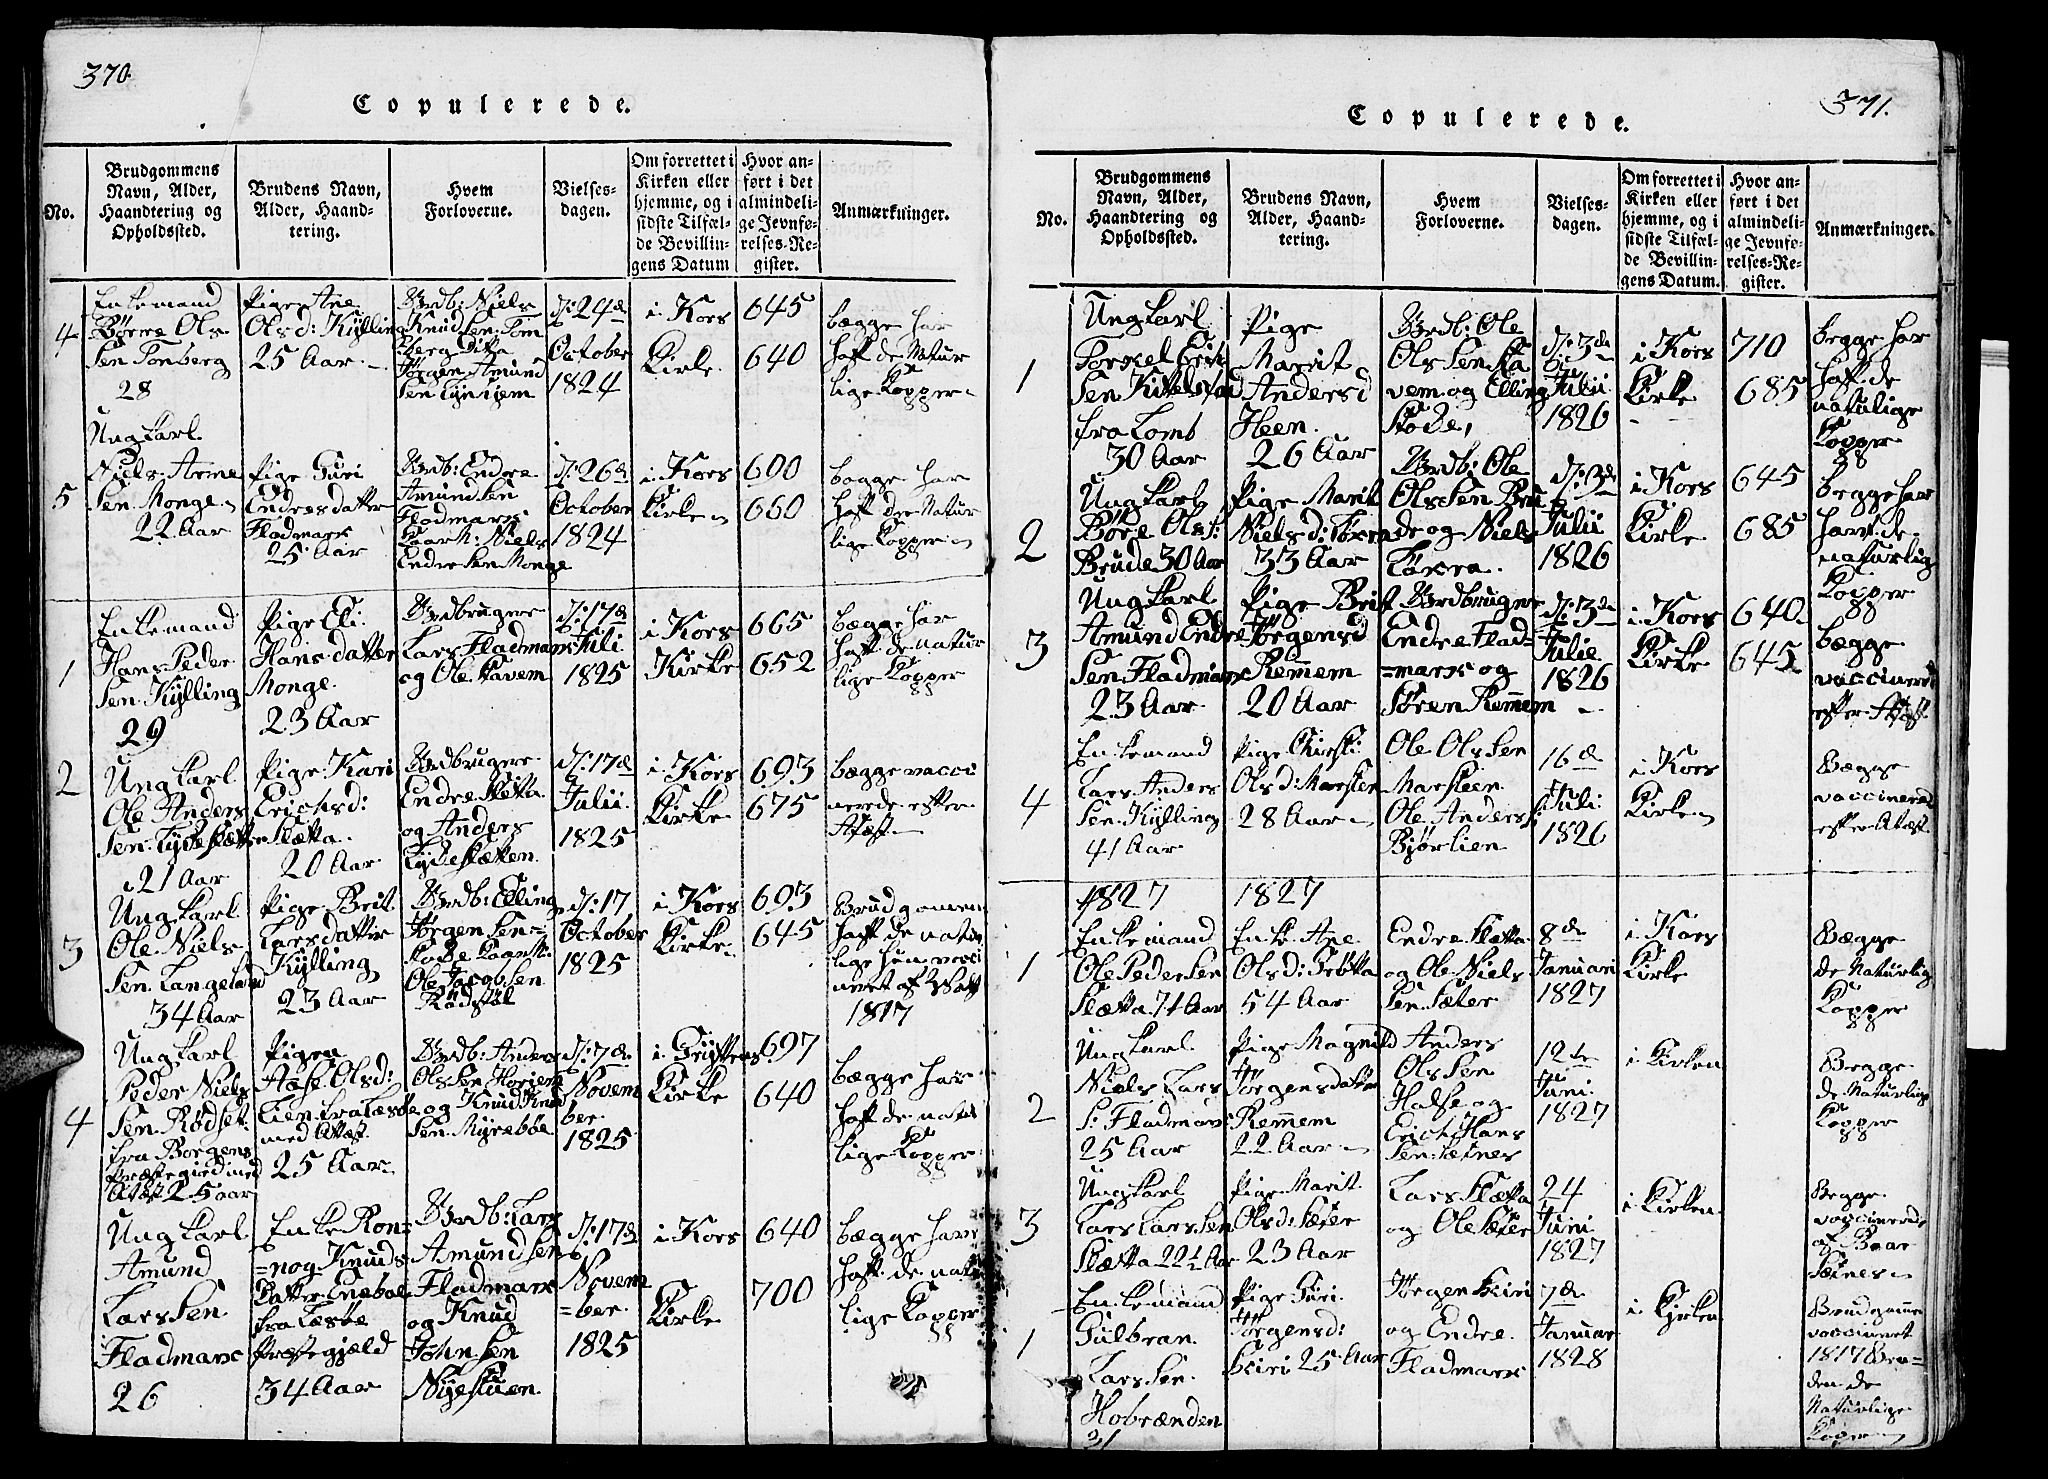 370.
Copulerede.
No.
Brudgommens
Navn, Alder,
Haandtering og
Opholdssted.
Brudens Navn,
Alder, Haand-
tering.
Hvem
Forloverne.
Vielses-
dagen.
Om forrettet i
Kirken eller
hjemme, og i
sidste Tilfæl-
de Bevillin-
gens Datum
Hvor an-
ført i det
almindeli-
ge Jevnfø-
relses-Re-
gister.
Anmærkninger.
4
Enkemand
Börre Ols
Sen Tonberg
28
Pige Ane
Olsd: Kylling
25 Aar
Grdb: Niels
Knudsen Ton
berg Ditto
Jörgen Amund
Sen
d: 24de
October
1824
i Kors
Kirke
645
640
bægge har
haft de Natur
lige Kopper
5
Ungkarl
Niels Arne
Sen Monge
22 Aar
Pige Guri
Endresdatter
Fladmark
25 Aar
Grdb: Endre
Amundsen
Fladmark
Niels
Endresen Monge
d: 26de
October
1824
i Kors
Kirke
600
660
bægge har
haft de Natur
lige Kopper
1
Enkemand
Hans Peder
Sen Kylling
29
Pige Eli
Hansdatter
Monge
23 Aar
Grdbrugere
Lars Fladmark
og Ole Stavem
d: 17de
Juli
1825
i Kors
Kirke
665
652
bægge har
haft de natur
lige Kopper
2
Ungkarl
Ole Anders
Sen
21 Aar
Pige Kari
Erichsd:
Slætta
20 Aar
Grdbrugere
Endre Slætta
og Anders
d: 17de
Julii
1825
i Kors
Kirke
693
675
bægge vacci
nerede efter
Attest
3
Ungkarl
Ole Niels
Sen Langeland
34 Aar
Pige Brit
Larsdatter
Kylling
23 Aar
Grdb: Elling
Jörgensen
Ole Jacobsen
Rödstöl
d: 17
October
1825
i Kors
Kirke
693
645
Brudgommen
haft de natur
lige hun vacci
neret af
1817
4
Ungkarl
Peder Niels
Sen Rödset
fra Borgens
Præstegield med
Attest 25 aar
Pigen
Aase Olsd:
Lien fra Læsöe
med Attest
25 Aar
Grdb: Anders
Olssen Horjem
og Knud Knud
Sen Myreböe
d: 7de
Novem
ber
1825
i Gryttens
Kirke
697
640
bægge har
haft de natur
lige Kopper
Ungkarl
Amund
Larssen
Fladmark
26
Enke Ron=
=nog Knuds
Datter Eneboe
fra Læsöe
Præstegjæld
34 Aar
Grdb: Lars
Amundsen
Fladmark
og Knud
Johnsen
Nÿestuen
d: 17de
Novem
=ber
1825
i Kors
Kirke
640
700
bægge have
haft de natur
lige Kopper
371.
Copulerede.
No.
Brudgommens
Navn, Alder,
Haandtering og
Opholdssted.
Brudens Navn,
Alder, Haand-
tering.
Hvem
Forloverne.
Vielses-
dagen.
Om forrettet i
Kirken eller
hjemme, og i
sidste Tilfæl-
de Bevillin-
gens Datum.
Hvor an-
ført i det
almindeli-
ge Jevnfø-
relses-Re-
gister.
Anmærkninger.
1
Ungkarl
Torkel Erich
Sen
fra Lomb
30 Aar
Pige
Marit
Andersd
Heen
26 Aar
Grdb: Ole
Olssen Sta
vem og Elling
Stode
d: 3de
Julii
1826
i Kors
Kirke
710
685
begge har
haft de
naturlige
Kopper
2
Ungkarl
Böre Ols:
Brude 30 Aar
Pige Marit
Nielsd:
33 Aar
Grdb: Ole
Olssen Bru
de og Niels
d: 3de
Julii
1826
i Kors
Kirke
645
685
begge har
havt de
naturlig
Kopper
3
Ungkarl
Amund Endre
Sen Fladmark
23 Aar
Pige Brit
Jörgensd
Remmem
20 Aar
Grdbrugere
Endre Flad=
=mark og
Sören Remmem
d: 3de
Julie
1826
i Kors
Kirke
640
645
bægge
vaccinered
efter Attest
4
Enkemand
Lars Anders
Sen Kylling
41 Aar
Pige Chirsti
Olsd: Marstein
28 Aar
Ole Olssen
Marstein
Ole Anders:
Bjørlien
16de
Juli
1826
i Kors
Kirke
Bægge
vaccinered
efter Attest
1827
1827
1
Enkemand
Ole Pedersen
Slætta 74 Aar
Enke Ane
Olsd:
54 Aar
Endre Slætta
og Ole Niels
Sen Sæter
8de
Januari
1827
i Kors
Kirke
Bægge
de Naturlig
Kopper
2
Ungkarl
Niels Lars
S: Fladmark
25 Aar
Pige Magnild
Jörgensdatter
Remmem
22 Aar
Anders
Olssen
Halse og
Erich Hans
Sen Sætnes
12te
Juni
1827
i Kirken
Begge
de Naturlige
Kopper
3
Ungkarl
Lars Larssen
Slætta 22½ Aar
Pige Marit
Olsd: Sæter
23 Aar
Lars Slætta
og Ole Sæter
24
Juni
1827
i Kirken
Begge
vaccinered
af Baar
Sætnes
1
Enkemand
Gulbran
Larssen
Hobrænden
31
Pige Guri
Jörgensd:
Skiri 25 Aar
Jörgen Skiri
og Endre
Fladmark
7de
Januar
1828
i Kirken
Brudgomme
vaccineret
1817 Bru=
den de
Naturlige
Kopper